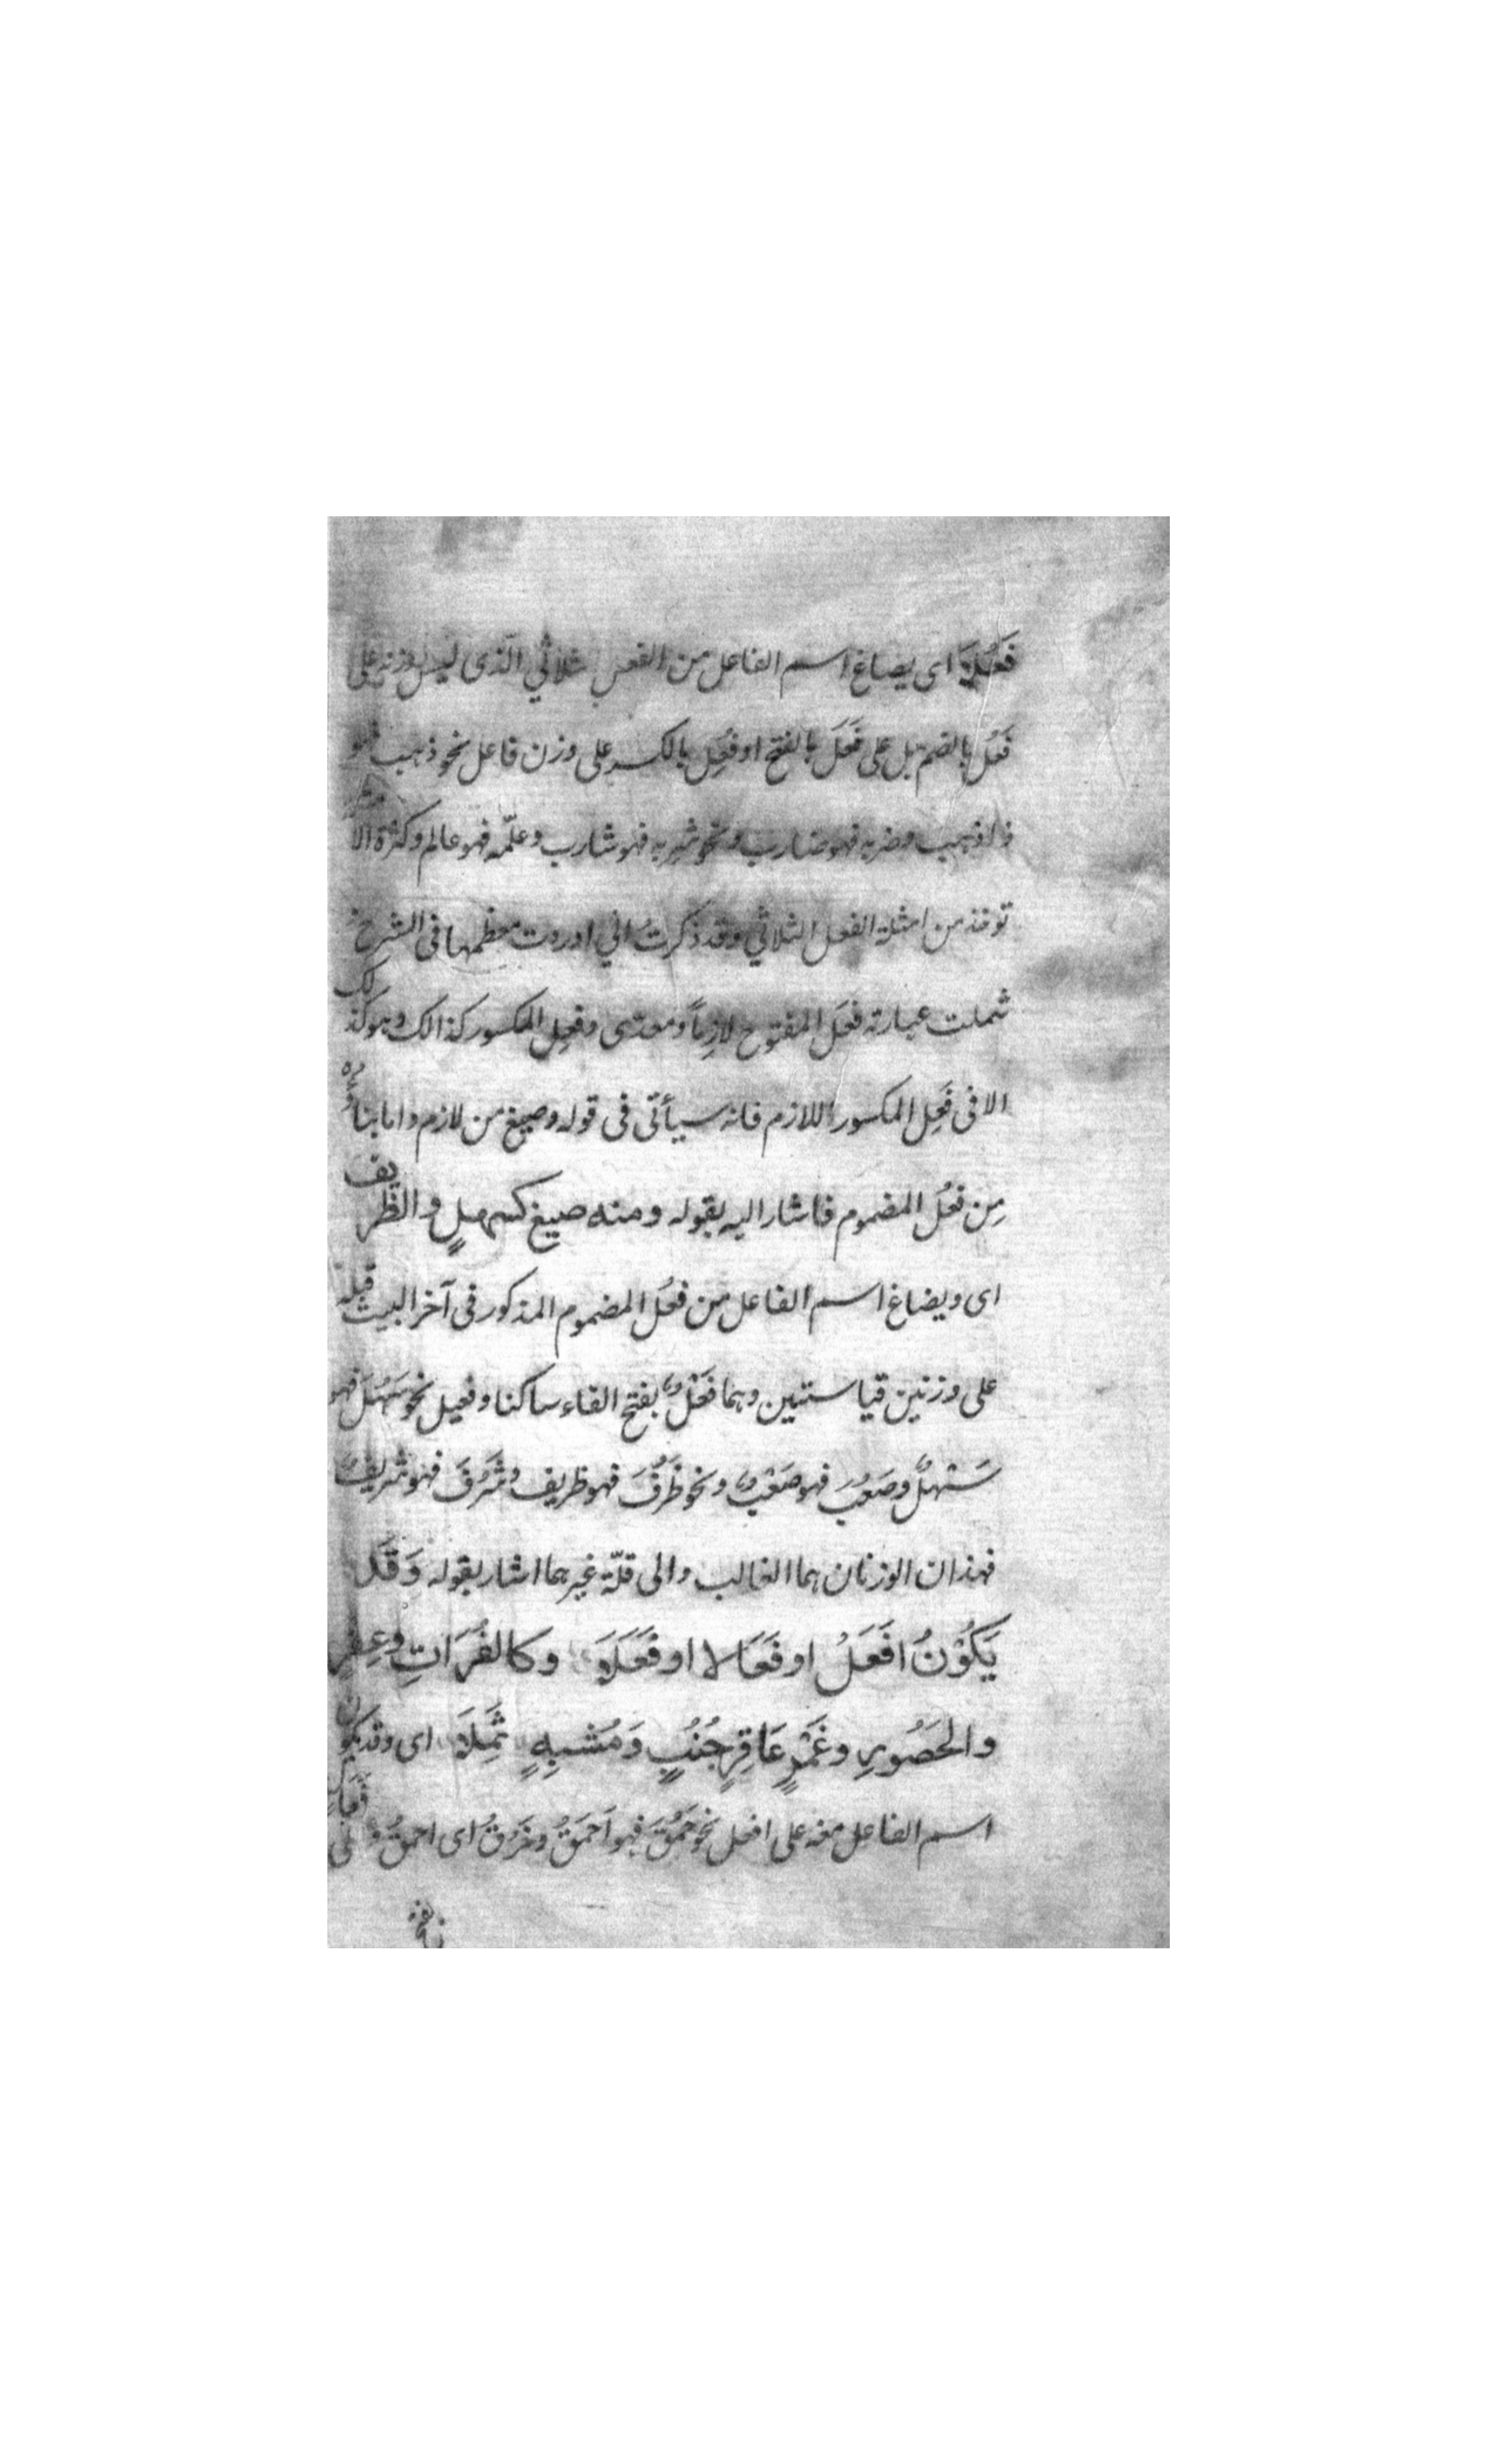 فَعُلَا اى يصاغ اسم الفاعل من الفعل الثلاثي الّذى ليس بوزنه على
فَعُل بالضم بل على فَعَلَ بالفتح او فَعِل بالكسر على وزن فاعل نحو ذهب فهو
ذاهب وضربه فهو ضارب ونحو شربه فهو شارب وعلّمه فهو عالم وكثرة الا مثلة
توخذ من امثلة الفعل الثلاثي وقد ذكرتُ انى اوردت معظمها فى الشرح
شملت عبارته فَعَل المفتوح لازِماً ومعدى وفعِل المكسور كذالك وهو كذلك
الا فى فَعِل المكسور اللازم فانه سيأتى فى قوله وصيغ من لازم واما بناؤُه
مِن فعُل المضموم فاشار اليه بقوله ومنه صيغ كسهلٍ والظريف
اى ويصاغ اسم الفاعل من فعُل المضموم المذكور فى آخر البيت قبله
على وزنين قياستين وهما فَعْلٌ بفتح الفاء ساكنا وفعيل نحو سَهُلَ فهو
سَهْلٌ وصَعُبَ فهو صَعْبٌ ونحو ظَرُفَ فهو ظريف وشَرُفَ فهو شريفٌ
فهذان الوزنان هما الغالب والى قلّة غيرهما اشار بقوله وَقَد
يَكُوْنُ افَعَلْ او فَعَالا او فَعَلَا وكالفُرَاتِ وعِفْرٍ
والحَصُورِ وغَمْرٍ عَاقِرٍ جُنُبٍ وَمُشبِهٍ ثَمِلَا اى وقد يكون
اسم الفاعل منه على افعل نحو حَمُقَ فهو اَحمَقُ وخَرُقُ اى احمقُ وعلى فَعَال